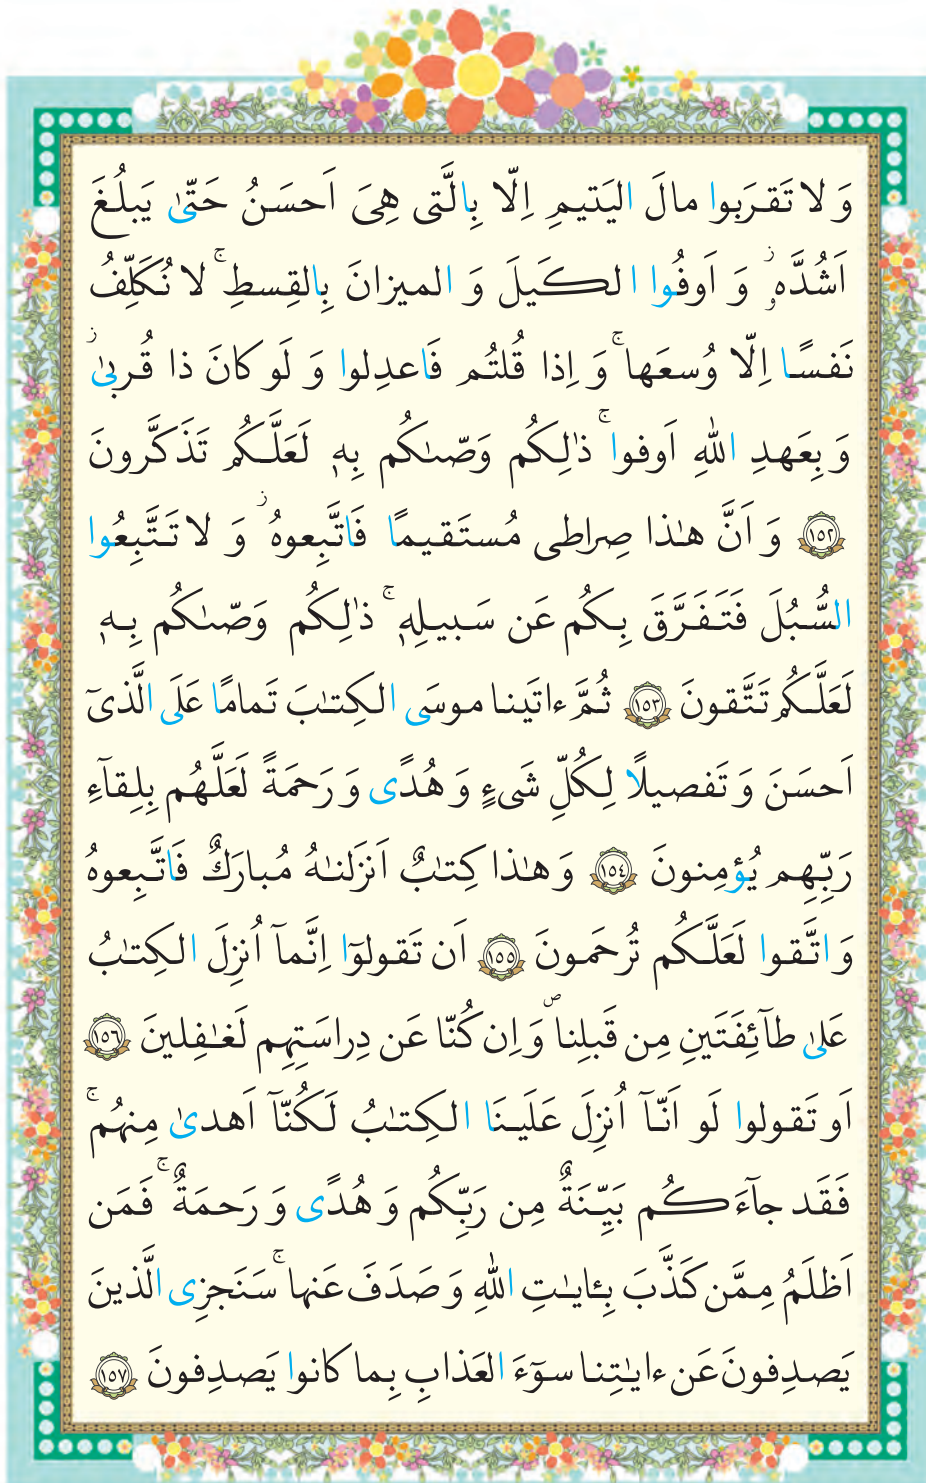 وَ لا تَقرَبوا مالَ اليَتيمِ اِلّا بِالَّتى هِىَ اَحسَنُ حَتّىٰ يَبلُغَ
اَشُدَّهٗ ۖ وَ اَوفُوا الكَيلَ وَ الميزانَ بِالقِسطِ ۚ لا نُكَلِّفُ
نَفسًا اِلّا وُسعَها ۚ وَ اِذا قُلتُم فَاعدِلوا وَ لَو كانَ ذا قُربىٰ ۖ
وَ بِعَهدِ اللهِ اَوفوا ۚ ذٰلِكُم وَصّىٰكُم بِهٖ لَعَلَّكُم تَذَكَّرونَ
﴿١٥٢﴾ وَ اَنَّ هٰذا صِراطى مُستَقيمًا فَاتَّبِعوهُ ۖ وَ لا تَتَّبِعُوا
السُّبُلَ فَتَفَرَّقَ بِكُم عَن سَبيلِهٖ ۚ ذٰلِكُم وَصّىٰكُم بِهٖ
لَعَلَّكُم تَتَّقونَ ﴿١٥٣﴾ ثُمَّ ءاتَينا موسَى الكِتٰبَ تَمامًا عَلَى الَّذىٓ
اَحسَنَ وَ تَفصيلًا لِكُلِّ شَىءٍ وَ هُدًى وَ رَحمَةً لَعَلَّهُم بِلِقآءِ
رَبِّهِم يُؤمِنونَ ﴿١٥٤﴾ وَ هٰذا كِتٰبٌ اَنزَلنٰهُ مُبارَكٌ فَاتَّبِعوهُ
وَ اتَّقوا لَعَلَّكُم تُرحَمونَ ﴿١٥٥﴾ اَن تَقولوٓا اِنَّمآ اُنزِلَ الكِتٰبُ
عَلىٰ طآئِفَتَينِ مِن قَبلِنا ۖ وَ اِن كُنّا عَن دِراسَتِهِم لَغٰفِلينَ ﴿١٥٦﴾
اَو تَقولوا لَو اَنّآ اُنزِلَ عَلَينَا الكِتٰبُ لَكُنّآ اَهدىٰ مِنهُم ۚ
فَقَد جآءَكُم بَيِّنَةٌ مِن رَبِّكُم وَ هُدًى وَ رَحمَةٌ ۚ فَمَن
اَظلَمُ مِمَّن كَذَّبَ بِـٔايٰتِ اللهِ وَ صَدَفَ عَنها ۚ سَنَجزِى الَّذينَ
يَصدِفونَ عَن ءايٰتِنا سوٓءَ العَذابِ بِما كانوا يَصدِفونَ ﴿١٥٧﴾